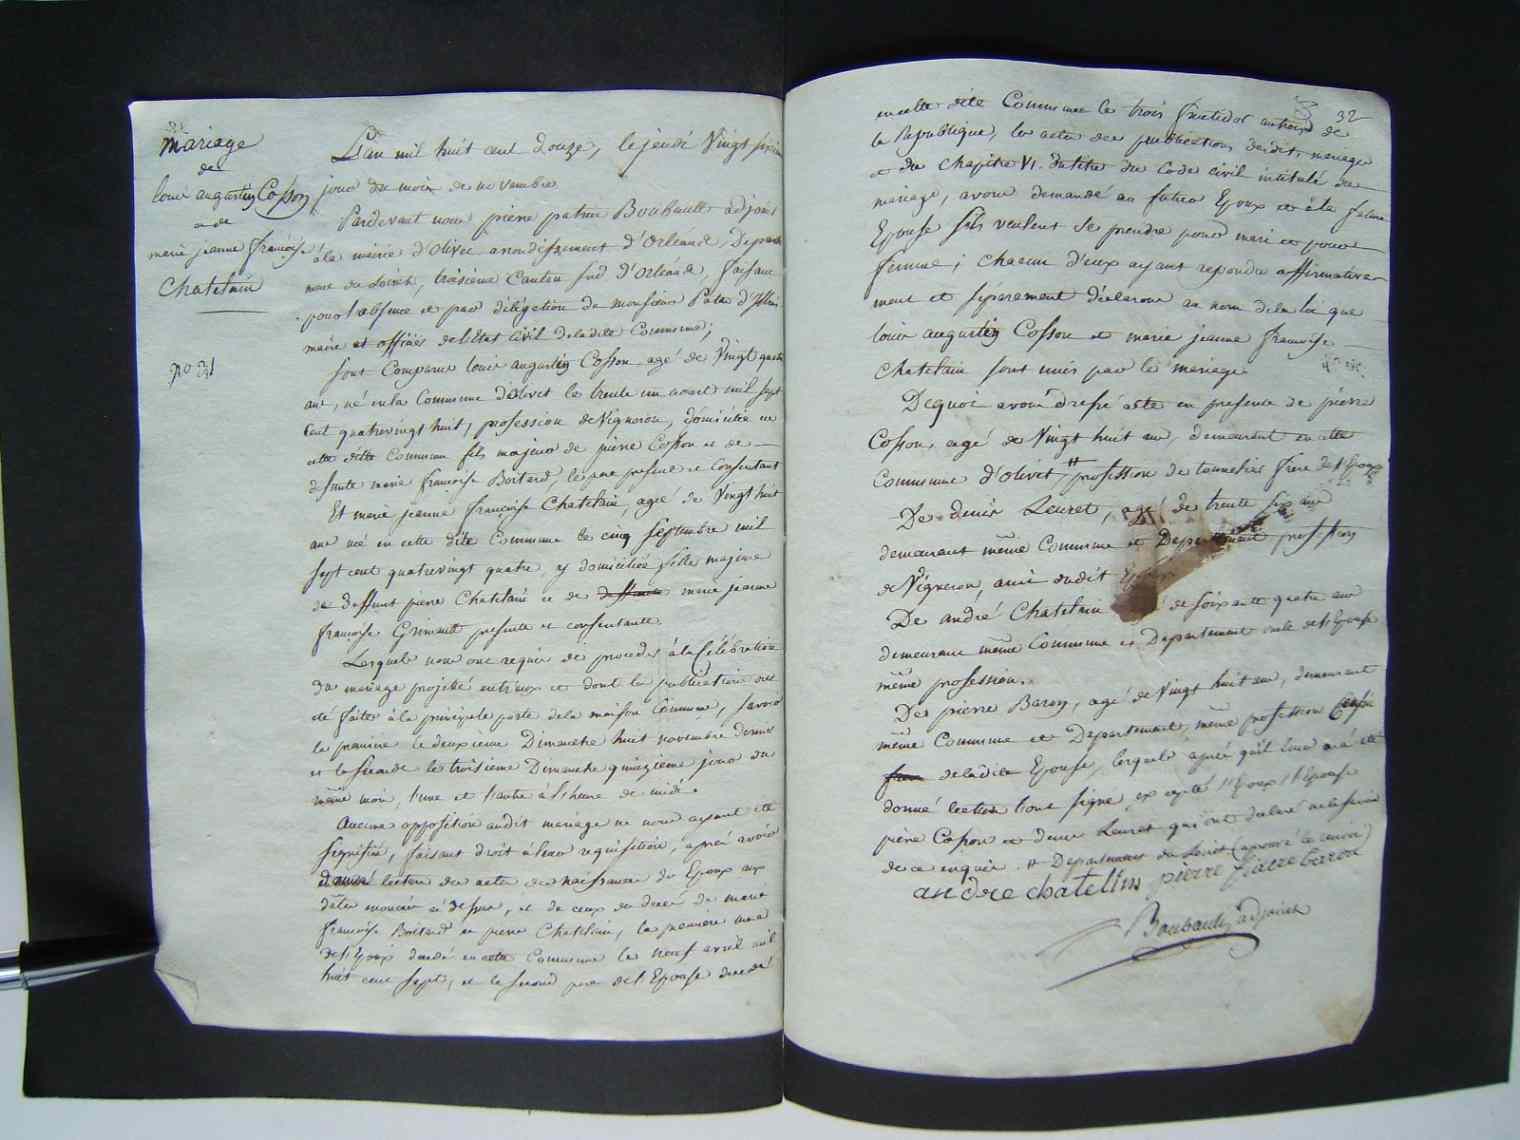 Mariage
de
louis augustin Cosson
a de
marie jeanne françoise
Chatelain
No 31
L'an mil huit cent douze, le jeudi Vingt sixieme
jour du mois de novembre
Pardevant nous pierre patrice Boubault adjoint
à la mairie d'Olivet arrondissement d'Orléans, Departe
ment du Loiret, troisieme Canton sud d'Orleans, faisant
pour l'absence et par délégation de monsieur
maire et officier de l'Etat Civil de ladite Commune;
sont Comparus louis augustin Cosson agé de Vingt quatre
ans, né en la Commune d'olivet le trente un aout mil sept
Cent quatrevingt huit, profession de Vigneron, domicilié en
cette ditte Commune fils majeur de pierre Cosson et de
defunte marie françoise Boitard, le pere present et Consentant
Et marie jeanne françoise Chatelain, agée de Vingt huit
ans née en cette dite Commune le cinq septembre mil
sept cent quatrevingt quatre y domiciliée fille majeure
de deffunt pierre Chatelain et de deffunte marie jeanne
françoise Grimault presente et consentante.
Lesquels nous ont requis de proceder à la Célébration
du mariage projetté entr'eux et dont les publications ont
été faites à la principale porte de la maison Commune, savoir
la premiere le deuxieme Dimanche huit novembre dernier
et la seconde le troisieme Dimanche quinzieme jour du
même mois, l'une et l'autre à l'heure de midi.
Aucune opposition audit mariage ne nous ayant été
signifiée, faisant droit à leur requisition, après avoir
donné lecture des actes de naissance des Epoux aux
dates enoncés cy dessus, et de ceux de decès de marie
françoise Boitard et pierre Chatelain, la premiere mere
de l'Epoux decedé en cette Commune le neuf avril mil
huit cent sept, et le second pere de l'Epouse decedé
32
en cette dite Commune le trois fructidor an treize de
la Republique, les actes des publications dudit mariage
et du chapitre VI du titre du Code civil intitulé du
mariage, avons demandé au futur Epoux et à la future
Epouse s'ils veulent se prendre pour mari et pour
femme; chacun d'eux ayant repondu affirmative
ment et separement déclarons au nom de la loi que
louis augustin Cosson et marie jeanne françoise
Chatelain sont unis par le mariage
Dequoi avons dressé acte en presence de pierre
Cosson, agé de Vingt huit ans, demeurant en cette
Commune d'olivet, # profession de tonnelier frere de l'Epoux
De denis Leuret, agé de trente six ans
demeurant même Commune et Departement profession
de Vigneron, ami dudit Epoux
De andré Chatelain agé de soixante quatre ans
demeurant même Commune et Departement oncle de l'Epouse
même profession.
De pierre Baron, agé de Vingt huit ans, demeurant
même Commune et Departement, même profession
frere de ladite Epouse, lesquels après qu'il leur en a été
donné lecture l'ont signé, excepté l'Epoux l'Epouse
pierre Cosson et denis Leuret qui ont declaré ne le savoir
de ce enquis. # Departement du Loiret (approuvé le renvoi)
andre chatelins pierre baron
Boubault, adjoint